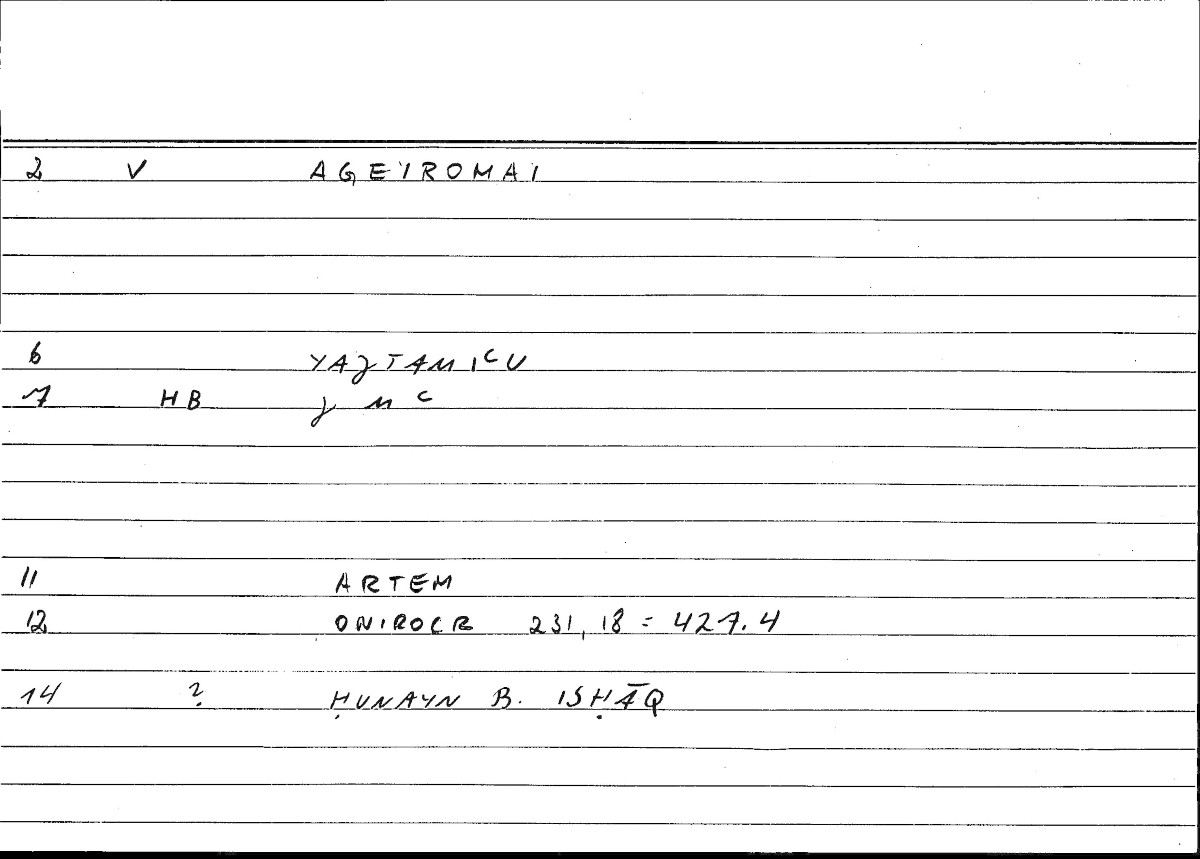 2 V AGEIROMAI
6 YAJTAMIʿU
7 HB J M ʿ
11 ARTEM
12 ONIROCR 231,18 = 427.4
14 ? ḤUNAYN B. ISḤĀQ